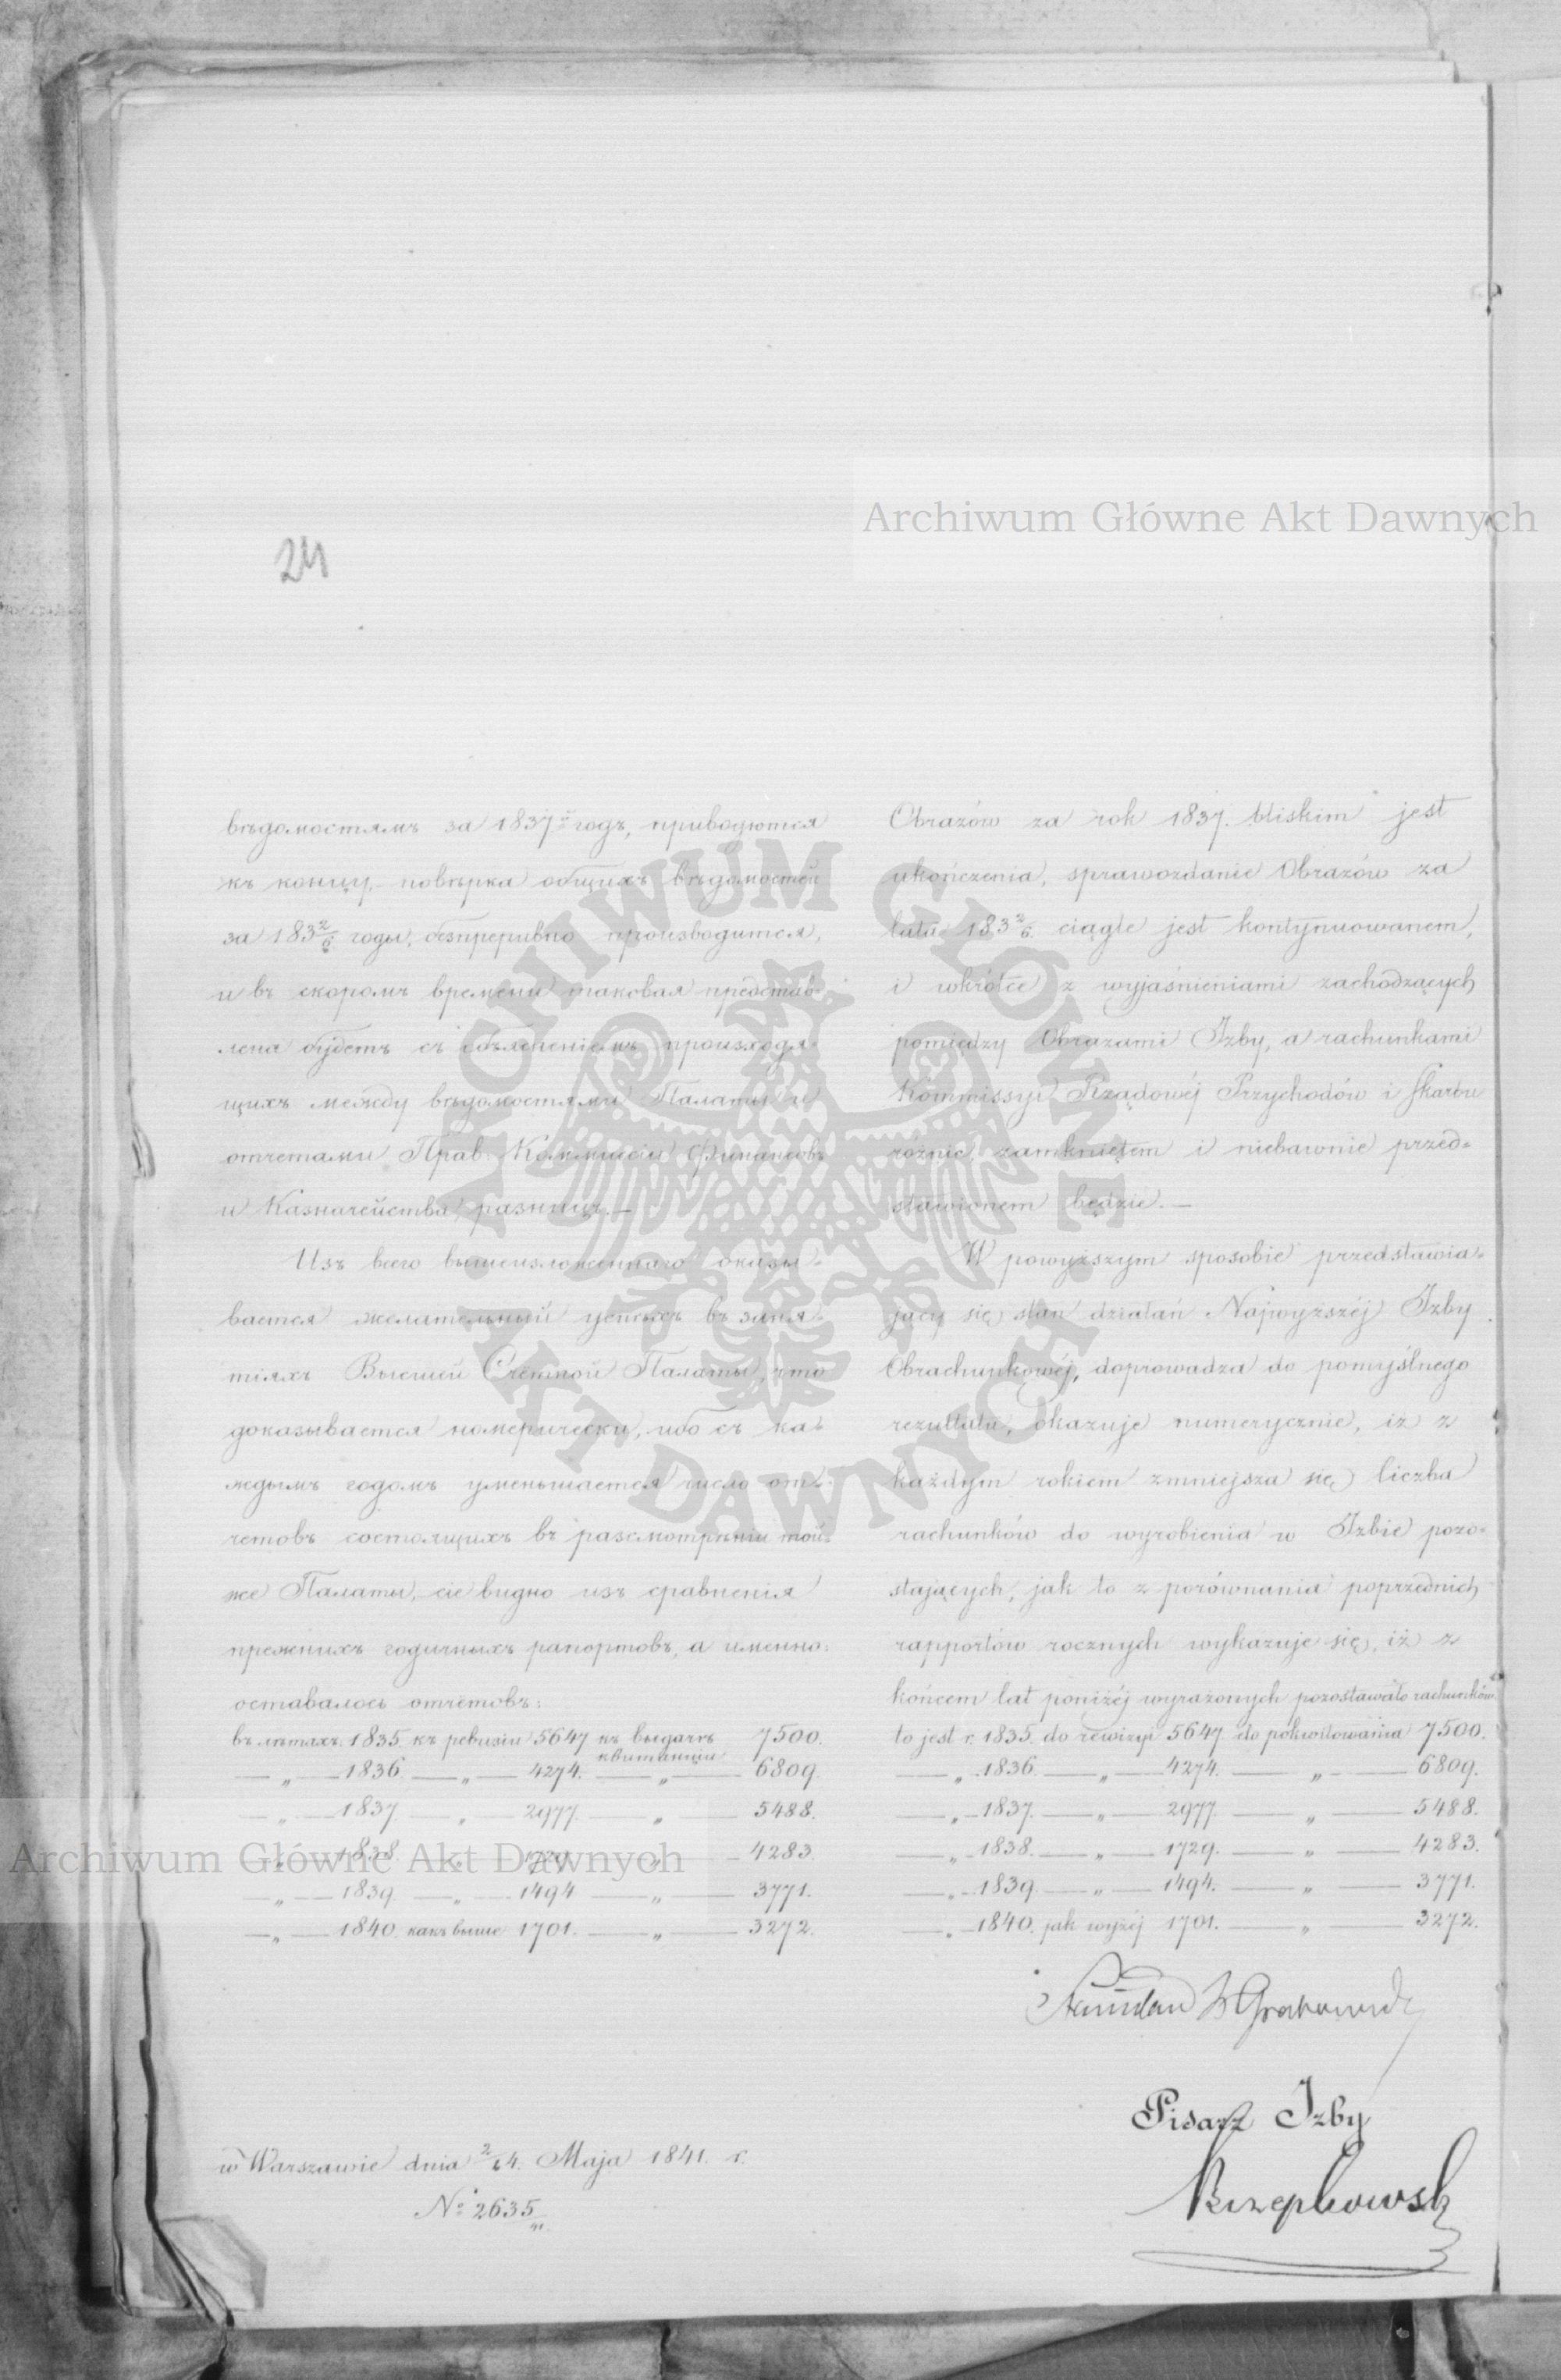 24
вѣдомостямъ за 1837й годъ, приводются
къ концу, повѣрка общихъ вѣдомостей
за 183 2/6 годы, безпрерывно производится,
и въ скоромъ времени таковая представ=
лена будетъ съ объясненіемъ происходя=
щихъ между вѣдомостями Палаты и
отчетами Прав. Коммисіи Финансовъ
и Казначейства разницъ. —
Изъ всего вышеизложеннаго оказы=
вается желательный успѣхъ въ заня=
тіяхъ Высшей Счетной Палаты, что
доказывается номерически, ибо съ ка=
ждымъ годомъ уменьшается число от=
четовъ состоящихъ въ разсмотрѣніи той=
же Палаты, сіе видно изъ сравненія
прежнихъ годичныхъ рапортовъ, а именно:
оставалось отчетовъ:
въ лѣтахъ 1835. къ ревизіи 5647 къ выдачѣ квитанціи 7500.
— „ — 1836. — „ — 4274. — „ — 6809.
— „ — 1837. — „ 2977. — „ — 5488.
— „ — 1838. — „ — 1729. — „ — 4283.
— „ — 1839. — „ — 1494 — „ — 3771.
— „ — 1840. какъ выше 1701. — „ — 3272.
Obrazów za rok 1837. bliskim jest
ukończenia, sprawozdanie Obrazów za
lata 183 2/6. ciągle jest kontynuowanem,
i wkrótce z wyjaśnieniami zachodzących
pomiędzy Obrazami Izby, a rachunkami
Kommissyi Rządowéj Przychodów i Skarbu
różnic, zamkniętem i niebawnie przed=
stawionem będzie. —
W powyższym sposobie przedstawia=
jący się stan działań Najwyższéj Izby
Obrachunkowéj, doprowadza do pomyślnego
rezultatu, okazuje numerycznie, iż z
każdym rokiem zmniejsza się liczba
rachunków do wyrobienia w Izbie pozo=
stających, jak to z porównania poprzednich
rapportów rocznych wykazuje się, iż z
końcem lat poniżéj wyrażonych pozostawało rachunków
to jest r. 1835. do rewizyi 5647. do pokwitowania 7500.
— „ — 1836. — „ — 4274. — „ — 6809.
— „ — 1837. — „ — 2977. — „ — 5488.
— „ — 1838. — „ — 1729. — „ — 4283.
— „ — 1839. — „ — 1494. — „ — 3771.
— „ — 1840. jak wyżéj 1701. — „ — 3272.
Stanisław Grabowski
Pisarz Izby
w Warszawie dnia 2/14. Maja 1841. r.
No 2635/41.
Archiwum Główne Akt Dawnych
Archiwum Główne Akt Dawnych
ARCHIWUM GŁÓWNE
AKT DAWNYCH